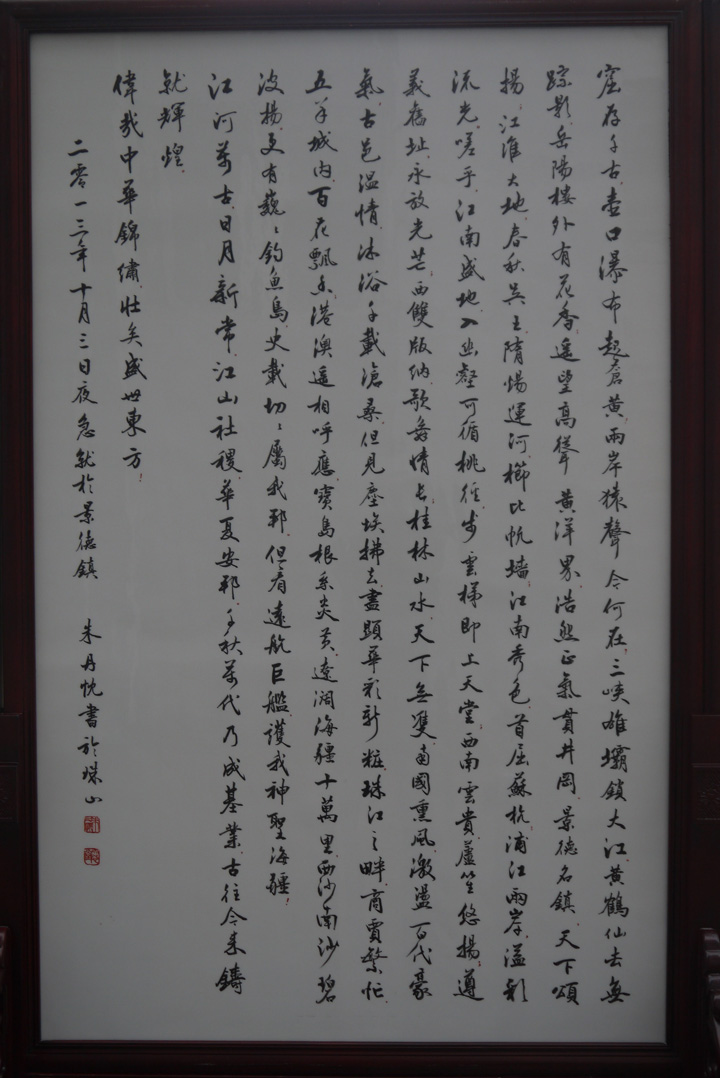 窟存千古壺口瀑布起蒼黃兩岸猿聲今何在三峽雄壩鎖大江黃鶴仙去無
踪影岳陽樓外有花香遥望高聳黄洋界浩然正氣貫井岡景德名鎮天下頌
揚江淮大地春秋吴王隋煬運河櫛比帆墻江南秀色首屈蘇杭浦江兩岸溢彩
流光嗟乎江南盛地入幽壑可循桃徑步雲梯即上天堂西南雲貴蘆笙悠揚遵
義舊址永放光芒西雙版纳歌舞情長桂林山水天下無雙南國熏風激盪百代豪
氣古邑温情沐浴千載滄桑但見塵埃拂去盡顯華彩新粧珠江之畔商賈繁忙
五羊城内百花飄香港澳遥相呼應寳島根系炎黄遼濶海疆十萬里西沙南沙碧
波揚更有巍巍釣魚島史載切切屬我邦但看遠航巨艦護我神聖海疆！
江河萬古日月新常江山社稷華夏安邦千秋萬代乃成基業古往今来鑄
就輝煌
偉哉中華錦繡壯矣盛世東方！
二零一三年十月三日夜急就於景德鎮 朱丹忱書於珠山